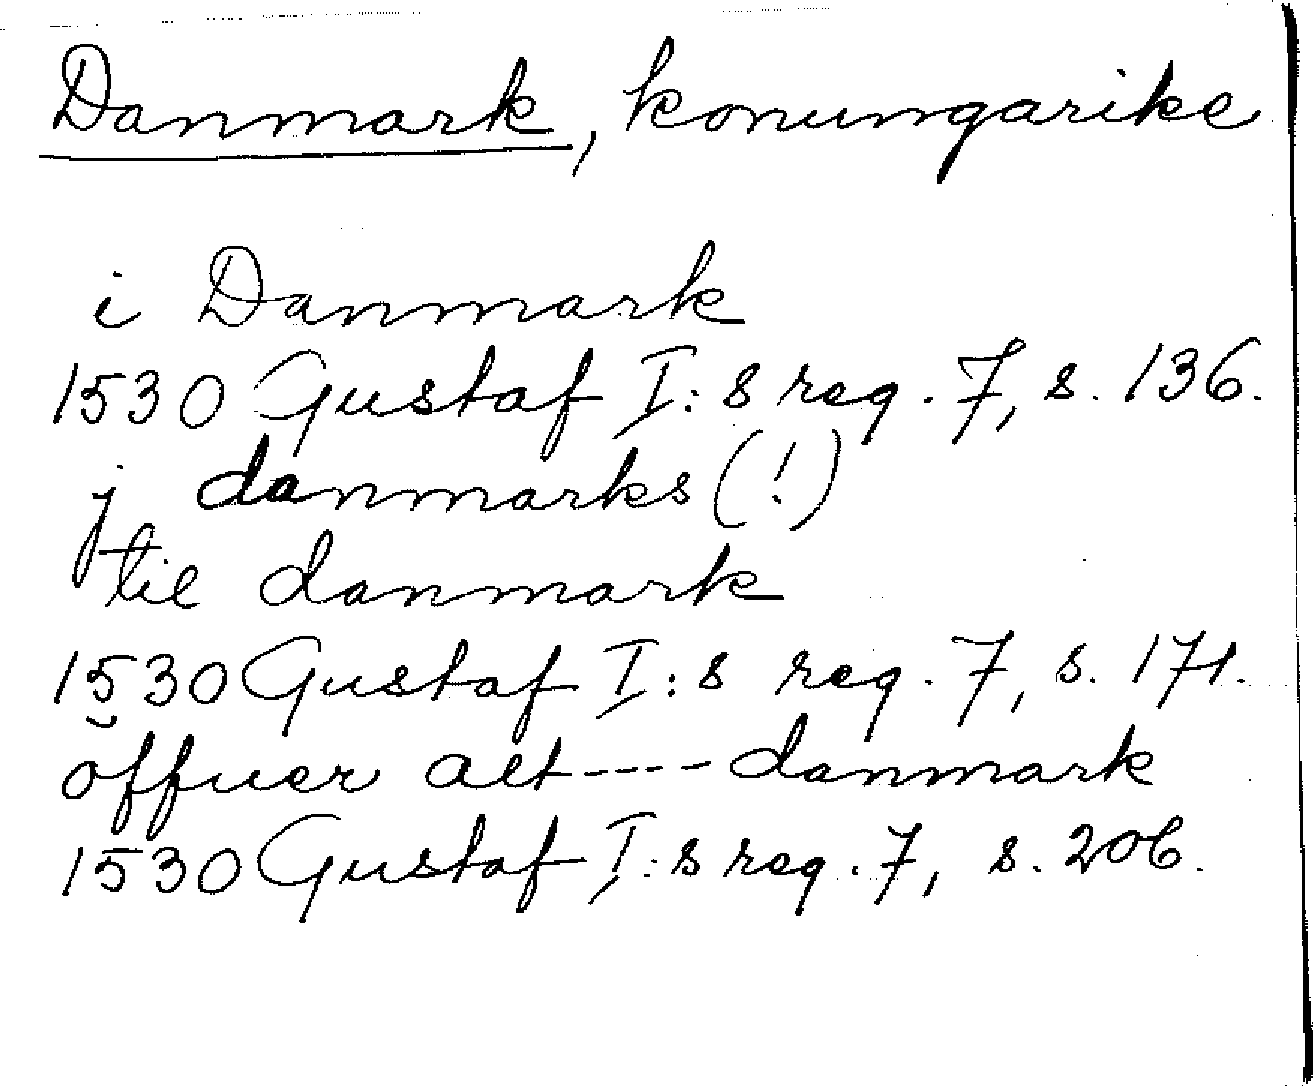 Danmark, konungarike
i Danmark
1530 Gustaf I:s reg. 7, s. 136.
j danmarks (!)
til danmark
1530 Gustaf I:s reg. 7, s. 171.
offuer alt ---- danmark
1530 Gustaf I:s reg. 7, s. 206.